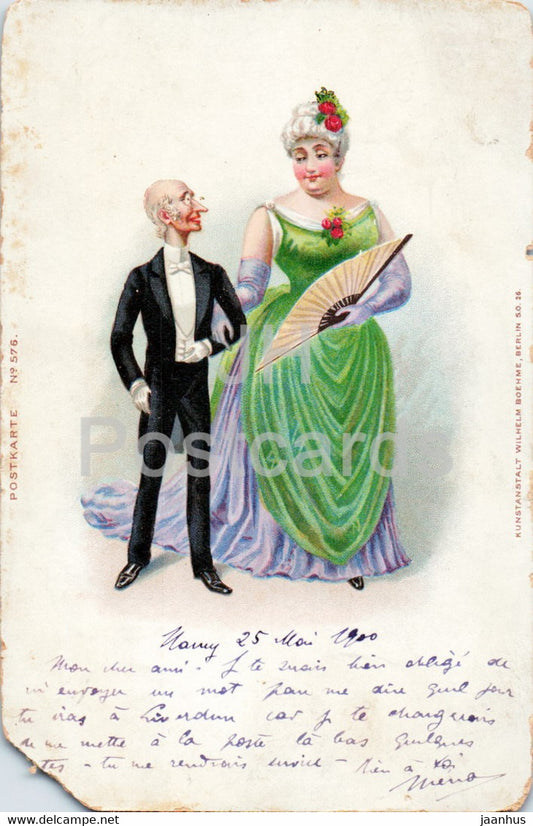 POSTKARTE Nº 576.
KUNSTANSTALT WILHELM BOEHME, BERLIN S.O. 26
JH
Postcards
Nancy 25 Mai 1900
Mon cher ami - Je te serais bien obligé de
m'envoyer un mot pour me dire quel jour
tu iras à Liverdun car je te chargerais
de me mettre à la poste là bas quelques
tes - tu me rendrais service - bien à toi
jaanhus
www.jhpostcards.com